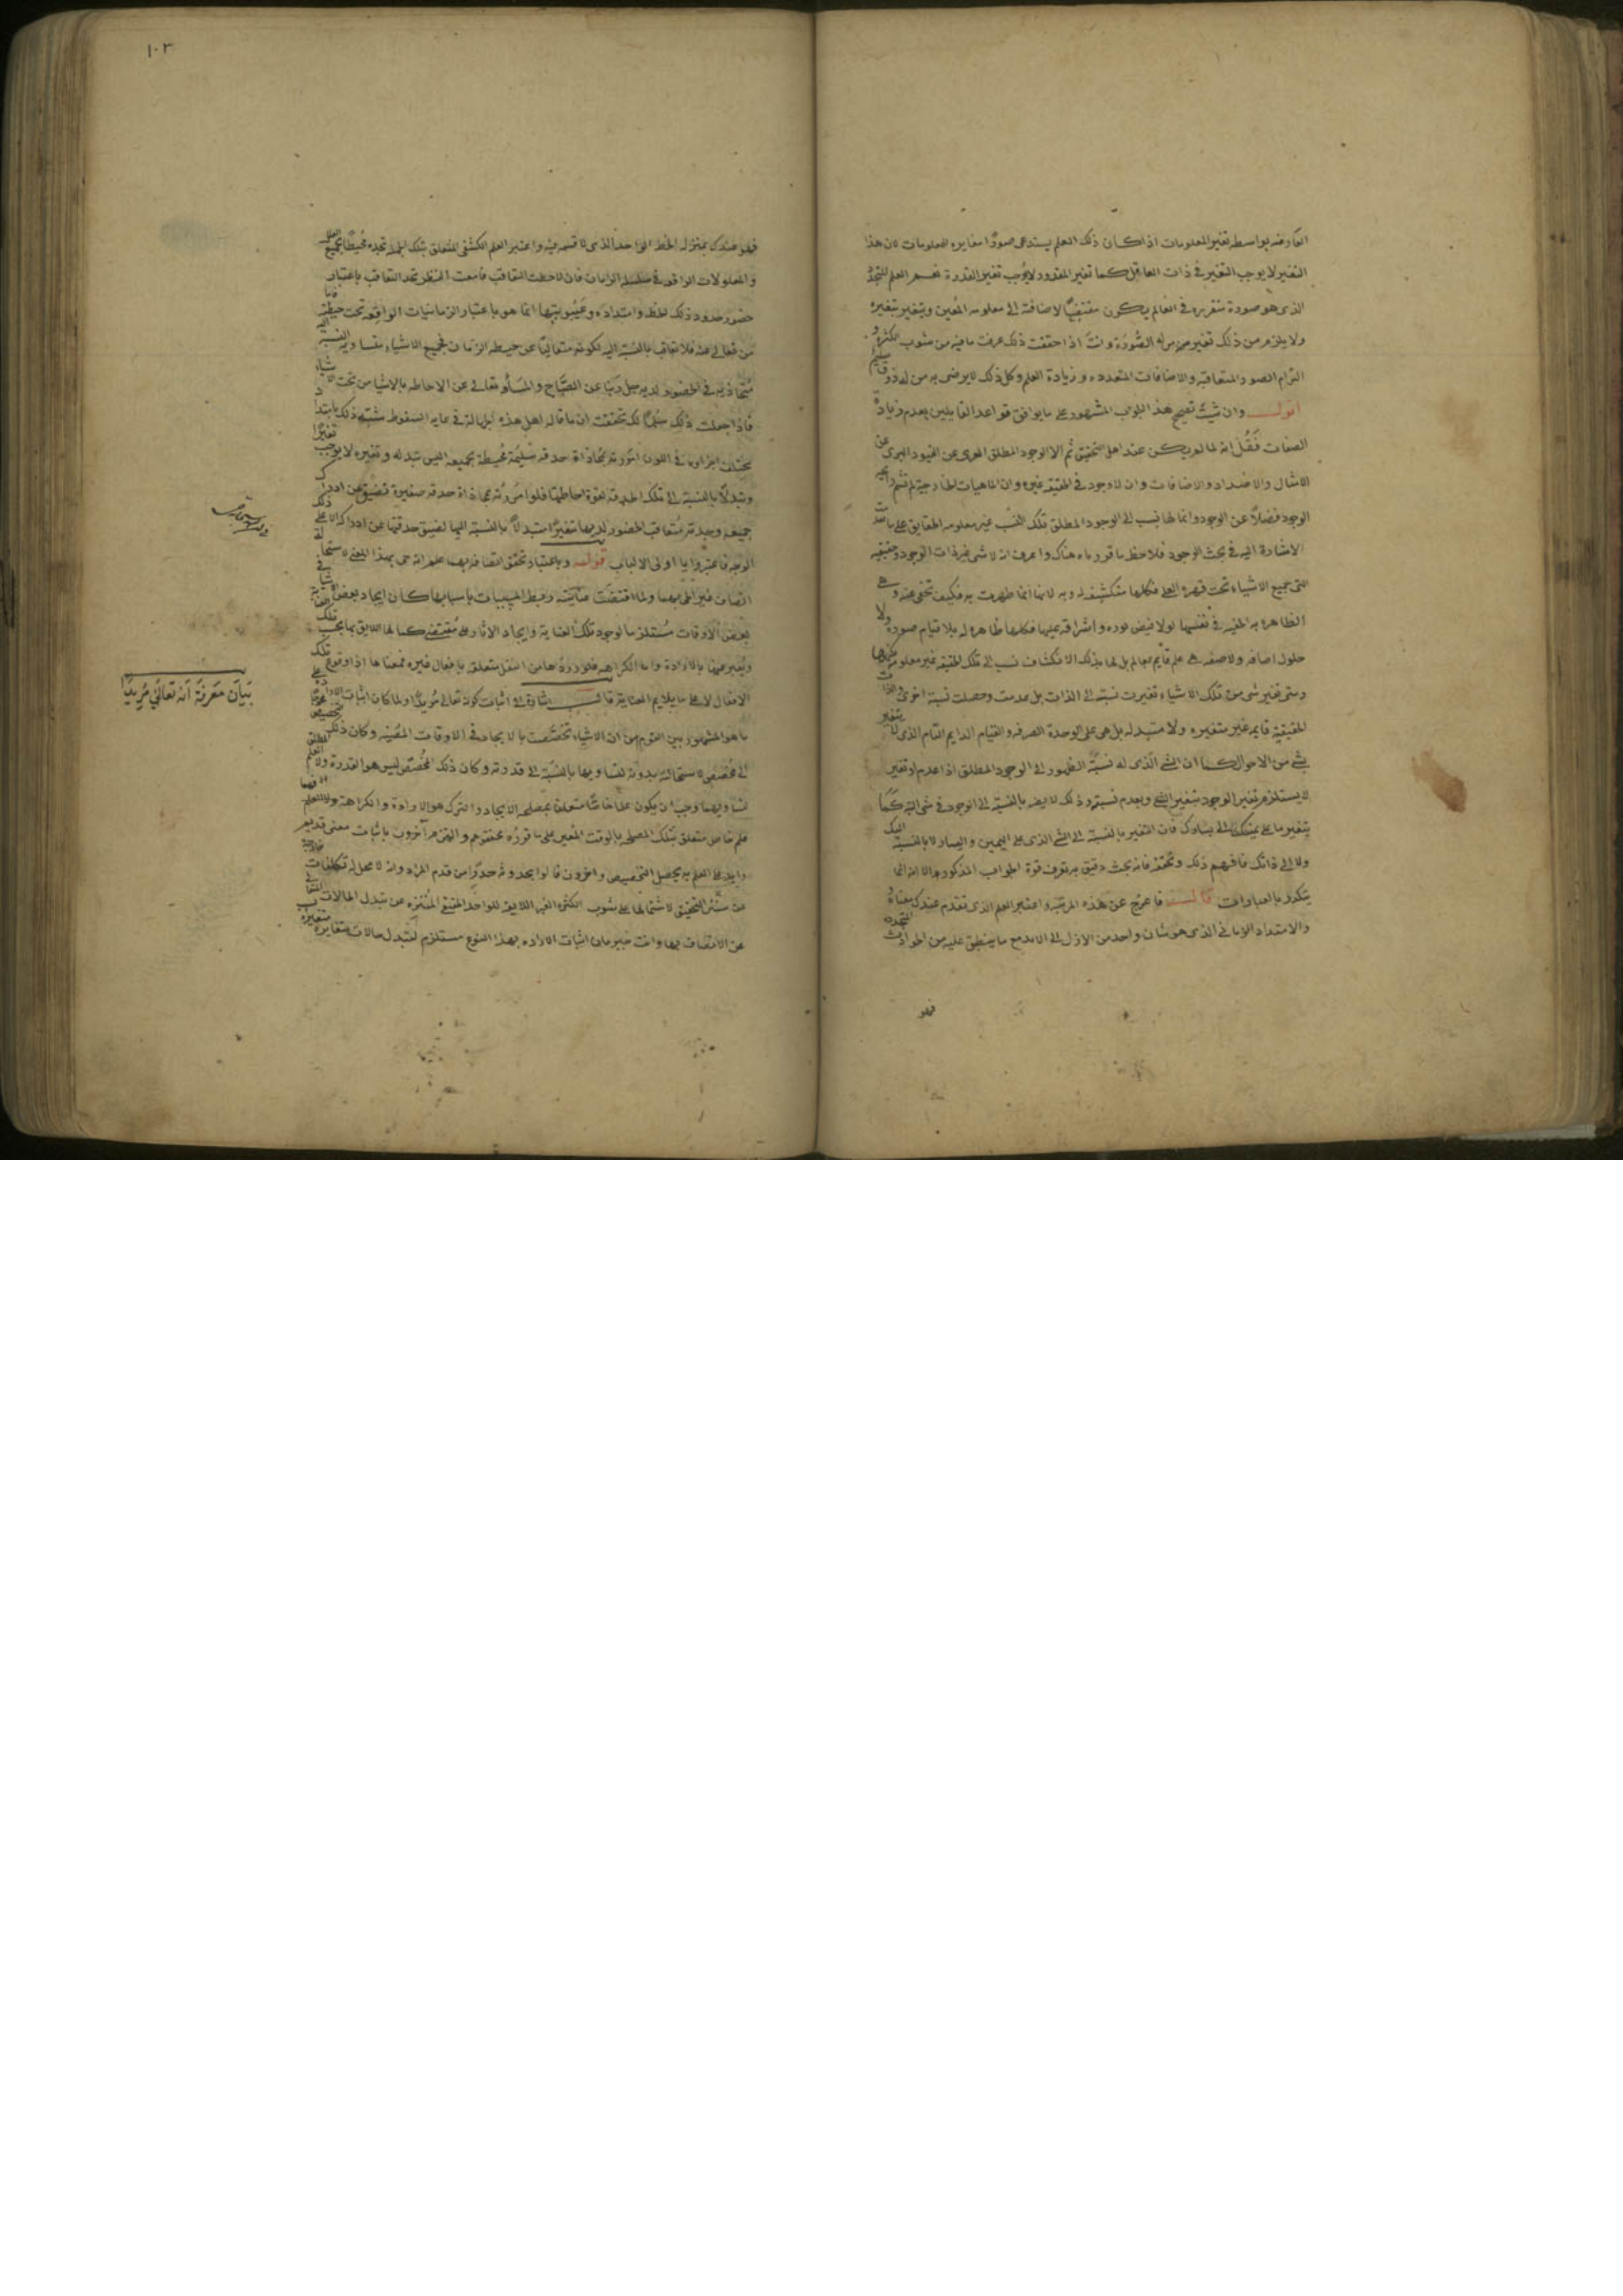 العارضه بواسطه تغير المعلومات اذا كان ذلك العلم يستدعى صورًا مغايره للمعلومات لان هذا
التغير لا يوجب التغير فى ذات العاقل كما تغير المقدور لا يوجب تغير القدرة نعم العلم المتجدد
الذى هو صورة متقرره فى العالم يكون مقتضيًا لاضافة الى معلومه المعين ويتغير بتغيره
ولا يلزم من ذلك تغير من له الصورة وانت اذا حققت ذلك عرفت ما فيه من شوب الكثره و
التزام الصور المتعاقبه والاضافات المتعدده و زيادة العلم وكل ذلك لا يرضى به من له ذوق سليم
اقول وان شئت تصحيح هذا الجواب المشهور على ما يوافق قواعد القايلين بعدم زيادة
الصفات فقل انه لما لم يكن عند اهل التحقيق ثم الا الوجود المطلق المعرى عن القيود المبرى عن
الامثال والاضداد والاضافات وان لا وجود فى الحقيقه غيره وان الماهيات الخارجية لم تشم رايحه
الوجود فضلًا عن الوجود وانما لها نسب الى الوجود المطلق تلك النسب غير معلومه الحقايق على ما سبقت
الاشارة اليه فى بحث الوجود فلاحظ ما قررناه هناك واعرف انه لا شى غير ذات الوجود وحقيقته
التى جميع الاشياء تحت قهره العلى فكلها منكشفه له وبه لانها انما ظهرت به فكيف تخفى عنه وهى
الظاهره به الخفيه فى نفسها لولا فيض نوره واشراقه عليها فكلها ظاهره له بلا قيام صوره ولا
حلول اضافه ولا صفه هى علم قايم بعالم بل لها بذلك الانكشاف نسب الى تلك الحقيقه غير معلومه كنهها
ومتى تغير شى من تلك الاشياء تغيرت نسبته الى الذات بل عدمت وحصلت نسبة اخرى والذات
الحقيقية قايمه غير متغيره ولا متبدله بل هى على الوحدة الصرفه والقيام الدايم التام الذى لا يتغير
بشئ من الاحوال كما ان الشئ الذى له نسبة الظهور الى الوجود المطلق اذا عدم او تغير
لا يستلزم تغير الوجود بتغير الشئ وبعدم نسبته وذلك لا يضر بالنسبة الى الوجود فى شى البته كما
يتغير ما على يمينك الى يسارك فان التغير بالنسبة الى الشئ الذى على اليمين واليسار لا بالنسبة اليك
ولا الى ذاتك فافهم ذلك وتحققه فانه بحث دقيق به تعرف قوة الجواب المذكور والا انه انما
يتكرر بالعبارات قال فاعرج عن هذه المرتبة واعتبر العلم الذى تقدم عندك معناه
والامتداد الزمانى الذى هو شان واحد من الازل الى الابد مع ما ينطبق عليه من الحوادث المتجدده
فهو
١٠٣
فهو عندك بمنزله الخط الواحد الذى لا قسمه فيه واعتبر العلم الكشفى المتعلق بتلك الجمله تجده محيطًا بجميع العلل
والمعلولات الواقعه فى سلسله الزمان فان لاحظت التعاقب فامعنت النظر تجد التعاقب باعتبار
حضور حدود ذلك الخط وامتداده وغيبوبتها انما هو باعتبار الزمانيات الواقعه تحت حيطته فاما
من تعالى عنه فلا تعاقب بالنسبة اليه لكونه متعاليًا عن حيطه الزمان فجميع الاشياء متساويه النسبة اليه
متحاذيه فى الحضور لديه جل ربنا عن الصباح والمساء وتعالى عن الاحاطه بالاشيا من تحت الاشياء
فاذا جعلت ذلك سلمًا لك تحققت ان ما قاله اهل هذه الجهالة فى غايه السقوط
مختلف اجزاوه فى اللون امررته بمحاذاة حدقه سليمة محيطة بجميعه اليس تبدله وتغيره لا يوجب تغيرًا
وتبدلًا بالنسبة الى تلك الحدقه لقوة احاطتها فلو امررته بمحاذاة حدقه صغيرة تضيق عن ادراك
جميعه وجدته متعاقب الحضور لديها متغيرًا متبدلًا بالنسبة اليها لضيق حدقتها عن ادراكه الا على ذلك
الوجه فاعتبروا يا اولى الالباب قوله وباعتبار تحقق اتصافه بهما علم انه حى بهذا المعنى لاستحالة
اتصاف غير الحى بهما ولما اقتضت عنايته ربط المسببات باسبابها كان ايجاد بعض الاشيا فى
بعض الاوقات مستلزما لوجود تلك العناية وايجاد الاثار على مقتضى كمالها اللايق بها بحسب تلك
ويعبر عنها بالارادة واما الكراهه فلورودها من النقل متعلقه بافعال غيره فمعناها اذا وقوع تلك
الافعال لا على ما يلايم العناية قال اشارة الى اثبات كونه تعالى مريدًا ولما كان اثبات الارادة على
ما هو المشهور بين القوم من ان الاشياء تخصصت بالايجاد فى الاوقات المعينه وكان ذلك محوجًا
الى مخصص لاستحالته بدونه لتساويها بالنسبة الى قدرته وكان ذلك المخصص ليس هو القدرة ولا العلم المطلق
لتساويهما وجب ان يكون علما خاصًا متعلقا بمصلحه الايجاد والترك هو الارادة والكراهة
علم خاص متعلق بتلك المصلحه بالوقت المعين على ما قرره محققوهم والتزم آخرون باثبات معنى قديم
زايد على العلم به يحصل التخصيص واخرون قالوا بحدوثه حذرًا من قدم المراد وانه لا محل له تكلفات خارجة
عن سنن التحقيق لاشتمالها على شوب الكثره الغير اللايقه للواحد الحقيقى المتنزه عن تبدل الحالات
عن الاتصاف بها وانت خبير بان اثبات الاراده بهذا النوع مستلزم لتبدل حالات متغايره
بيان معرفة انه تعالى مريدًا